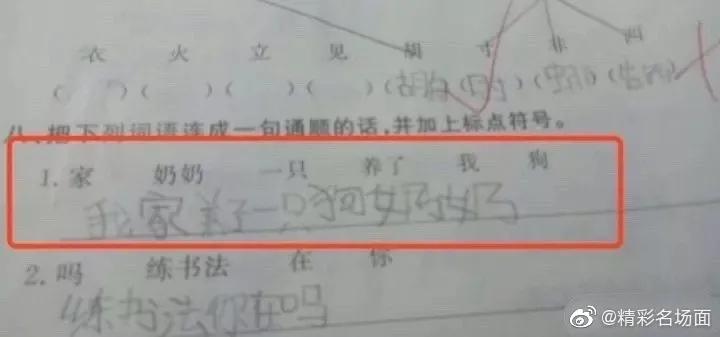 衣 火 立 见 胡 寸 非 西
( ) ( ) ( ) ( ) (胡) ( ) ( ) ( )
八、把下列词语连成一句通顺的话,并加上标点符号。
1. 家 奶奶 一只 养了 我 狗
我家养了一只狗奶奶
2. 吗 练书法 在 你
练书法你在吗
@精彩名场面